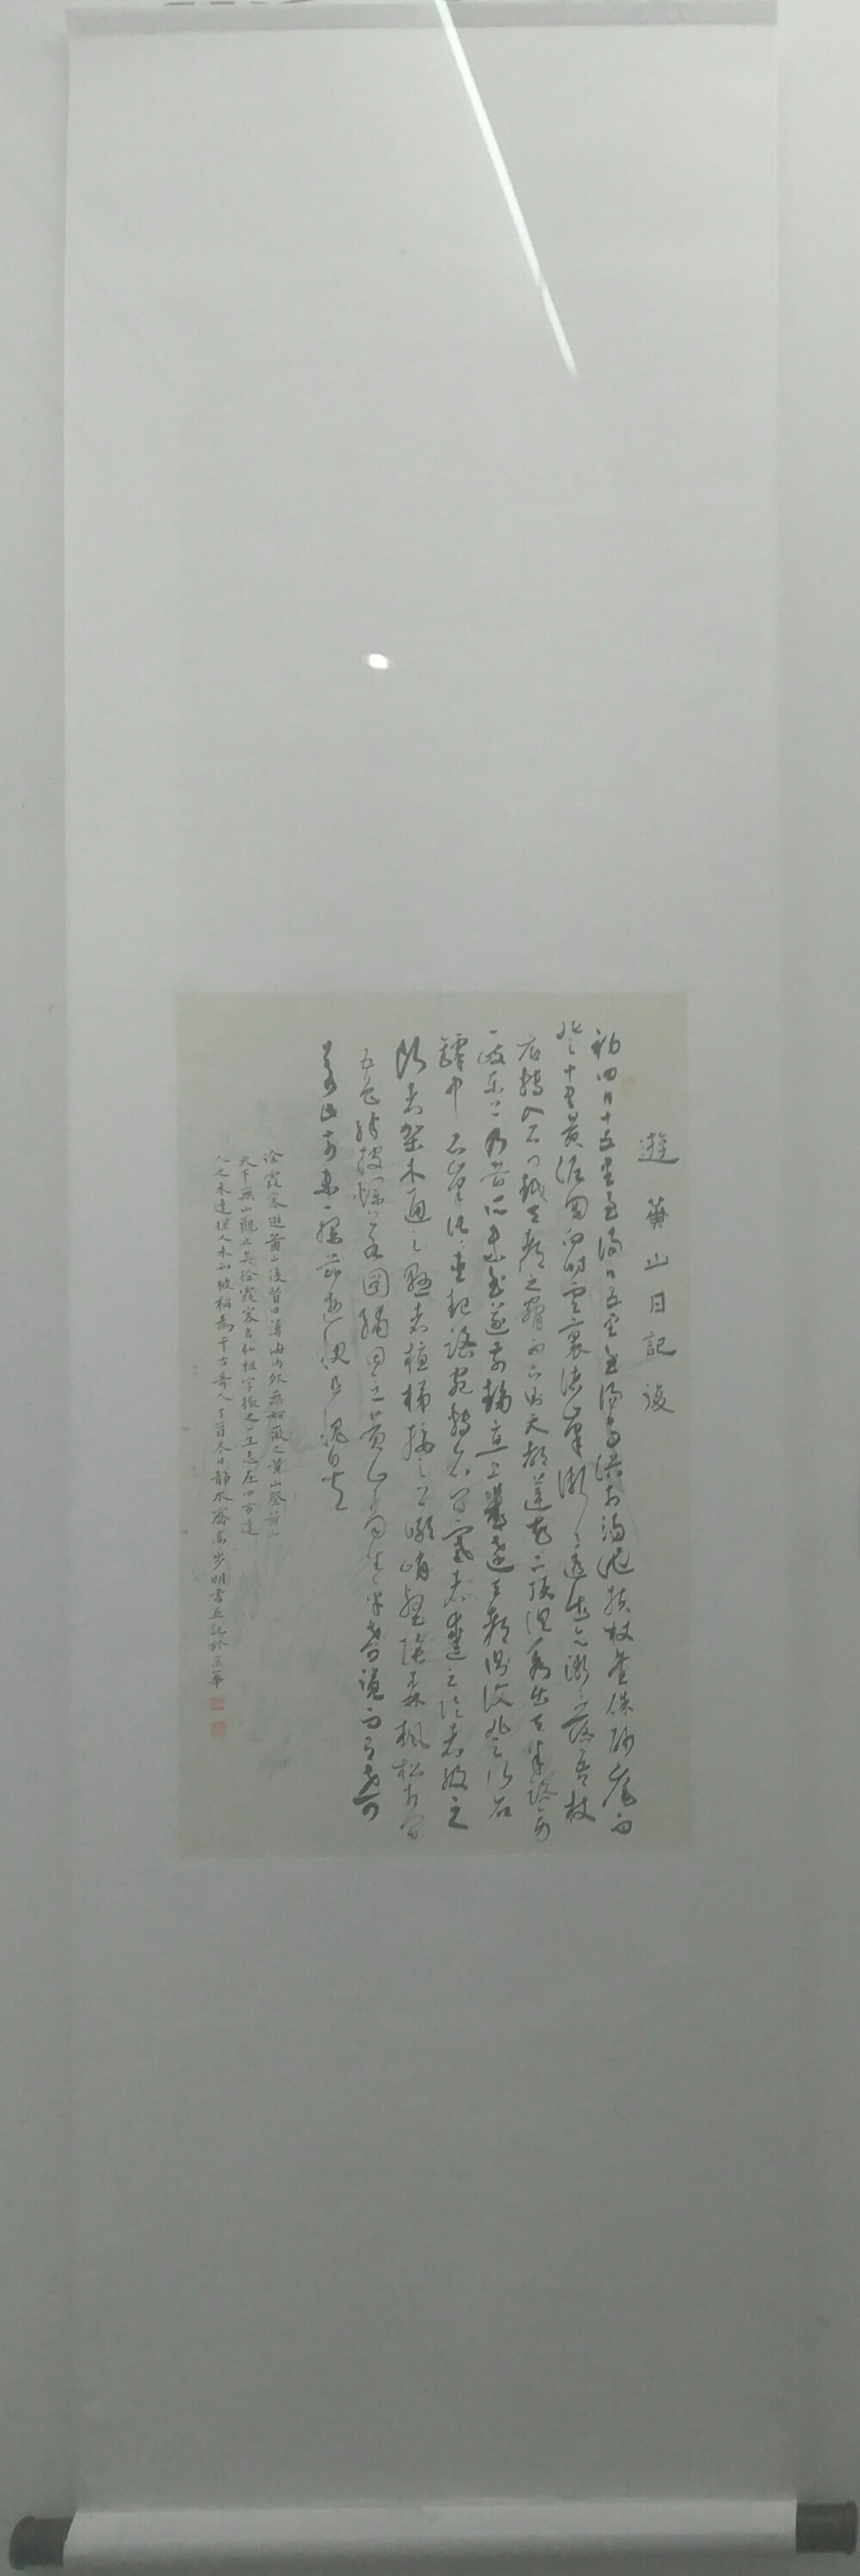 遊黃山日記後
初四日十五里至湯口五里至湯寺浴於湯池扶杖望硃砂庵而
登十里黃泥岡向時雲裏諸峯漸漸透出亦漸漸落吾杖
底轉入石門越天都之脅而下則天都蓮花二頂俱秀出天半路旁
一岐東上乃昔所未至遂前趨直上幾達天都側復北上行石
罅中石峯片片夾起路宛轉石間塞者鑿之陡者級之
斷者架木通之懸者植梯接之下瞰峭壑陰森楓松相間
五色紛披燦若圖繡因念黃山當生平奇覽而有奇
若此前未一探茲遊快且愧矣
徐霞客遊黃山後嘗曰薄海內外無如徽之黃山登黃山
天下無山觀止矣徐霞客名弘祖字振之一生志在四方達
人之未達探人未知被稱為千古奇人丁酉冬日靜水齋馬步明書並記於京華